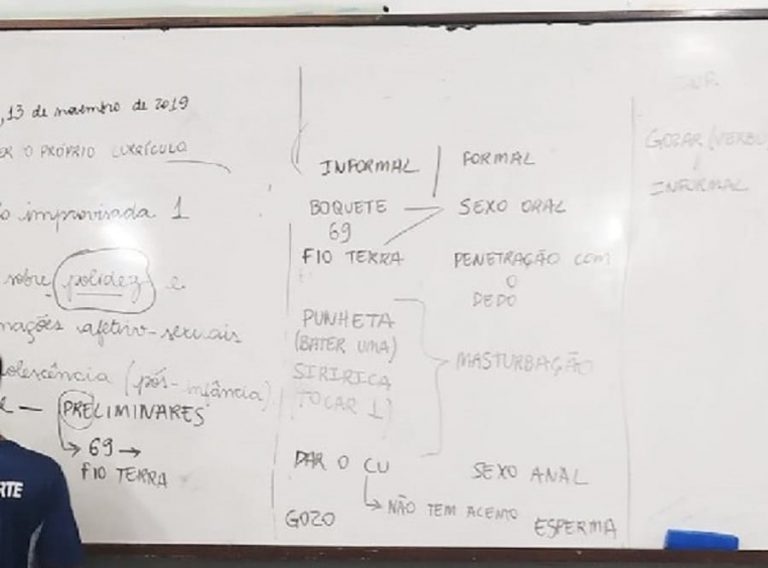 ,13 de novembro de 2019
ER O PRÓPRIO CURRÍCULO
o improvisada 1
sobre polidez e
mações afetivo-sexuais
olescência (pós-infância)
e — PRELIMINARES
↳ 69 →
FIO TERRA
RTE
INFORMAL
FORMAL
BOQUETE — SEXO ORAL
69
FIO TERRA
PENETRAÇÃO COM
O
DEDO
PUNHETA
(BATER UMA)
SIRIRICA
(TOCAR 1)
MASTURBAÇÃO
DAR O CU
SEXO ANAL
↳ NÃO TEM ACENTO
GOZO
ESPERMA
GOZAR (VERBO
INFORMAL